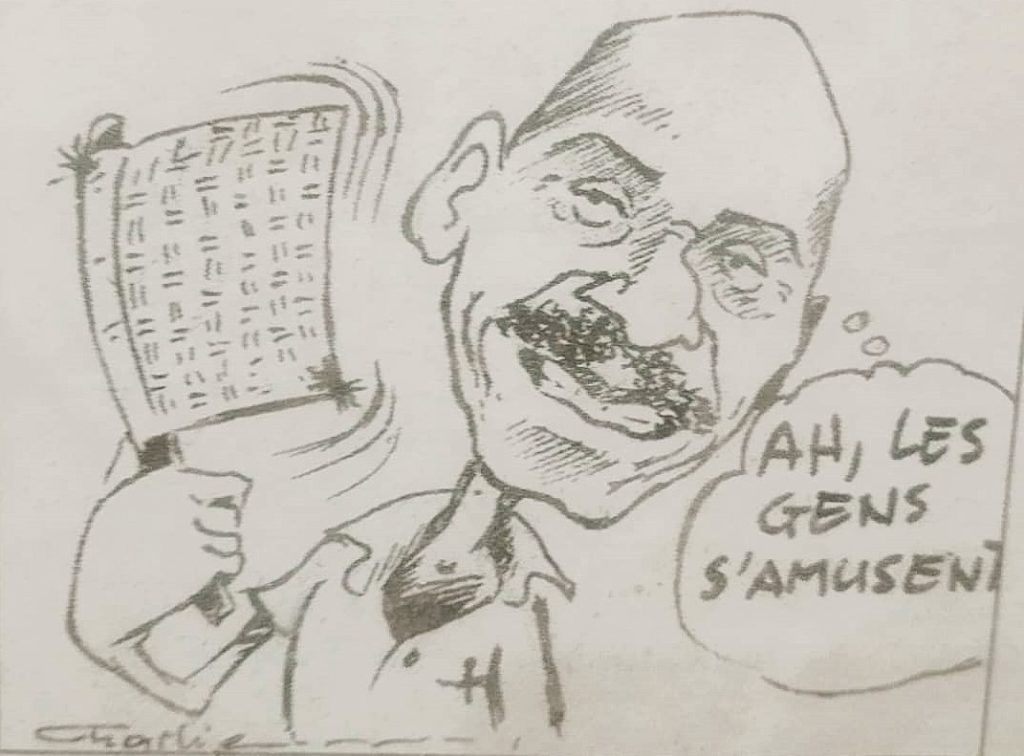 AH, LES
GENS
S'AMUSENT
Charlie